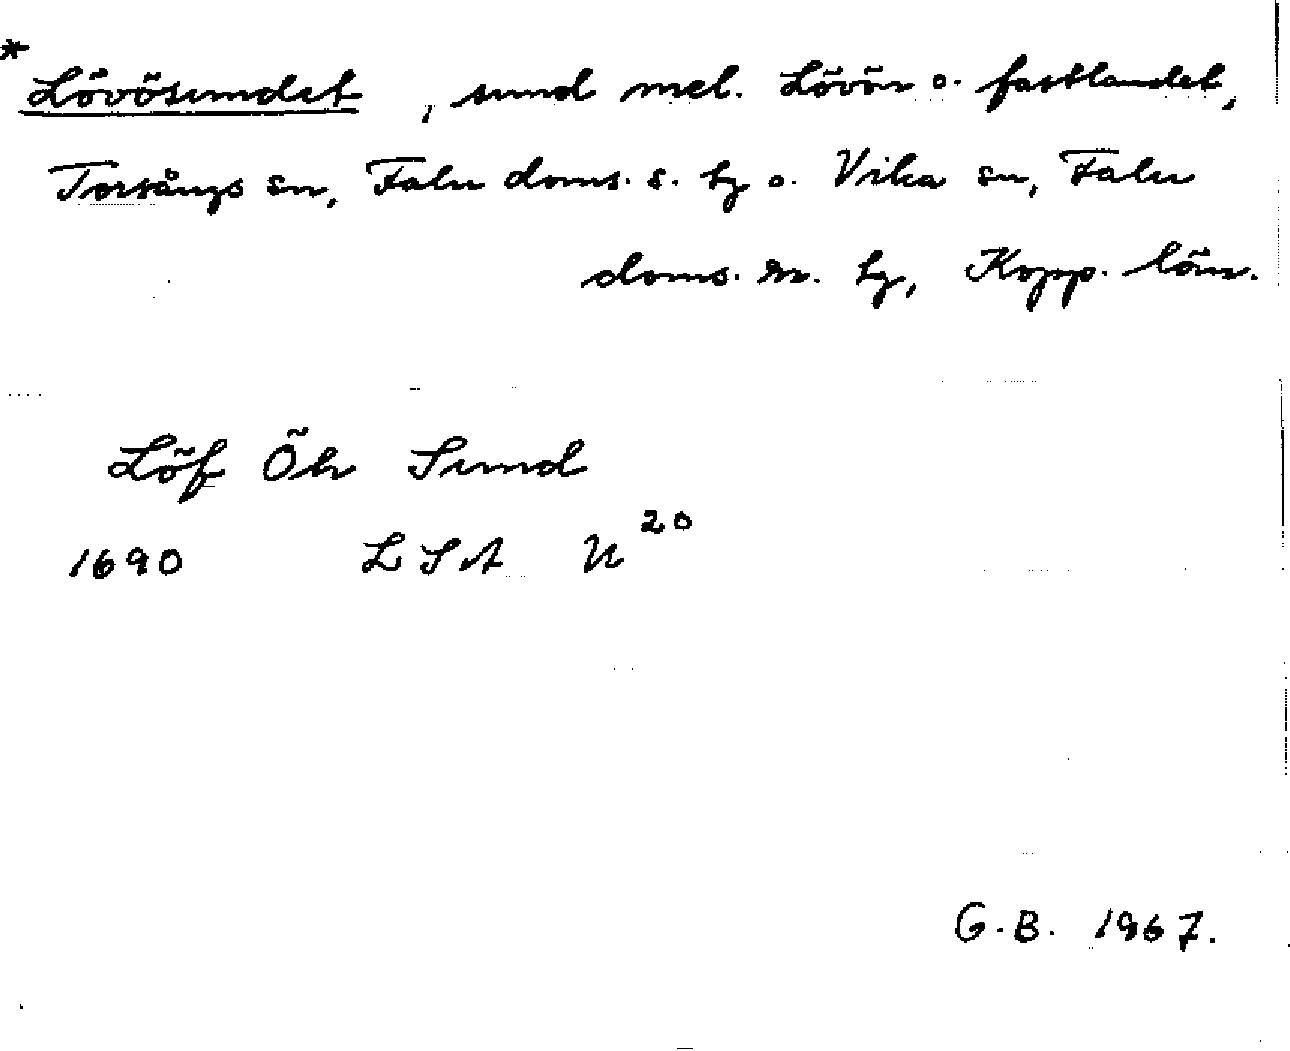 * Lövösundet, sund mel. Lövön o. fastlandet,
Torsångs sn, Falu doms. s. tg o. Vika sn, Falu
doms. n. tg, Kopp. län.
Löf Öh Sund
1690 LSA U 20
G.B. 1967.